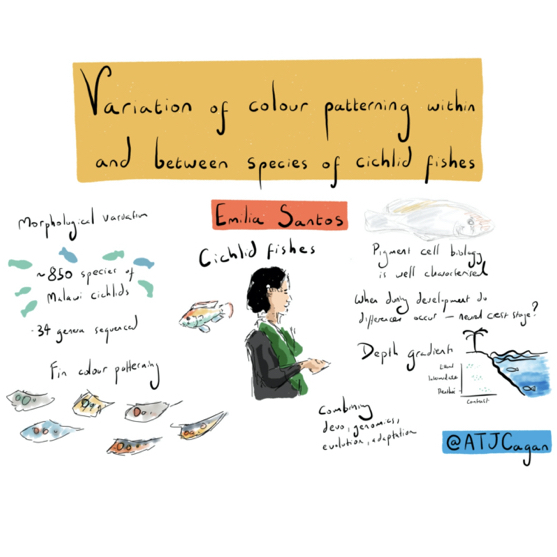 Variation of colour patterning within
and between species of cichlid fishes
Emilia Santos
Cichlid fishes
Morphological variation
~850 species of
Malawi cichlids
·34 genera sequenced
Fin colour patterning
Pigment cell biology
is well characterised
When during development do
differences occur – neural crest stage?
Depth gradient
Contrast
Combining
devo, genomics,
evolution, adaptation
@ATJCagan